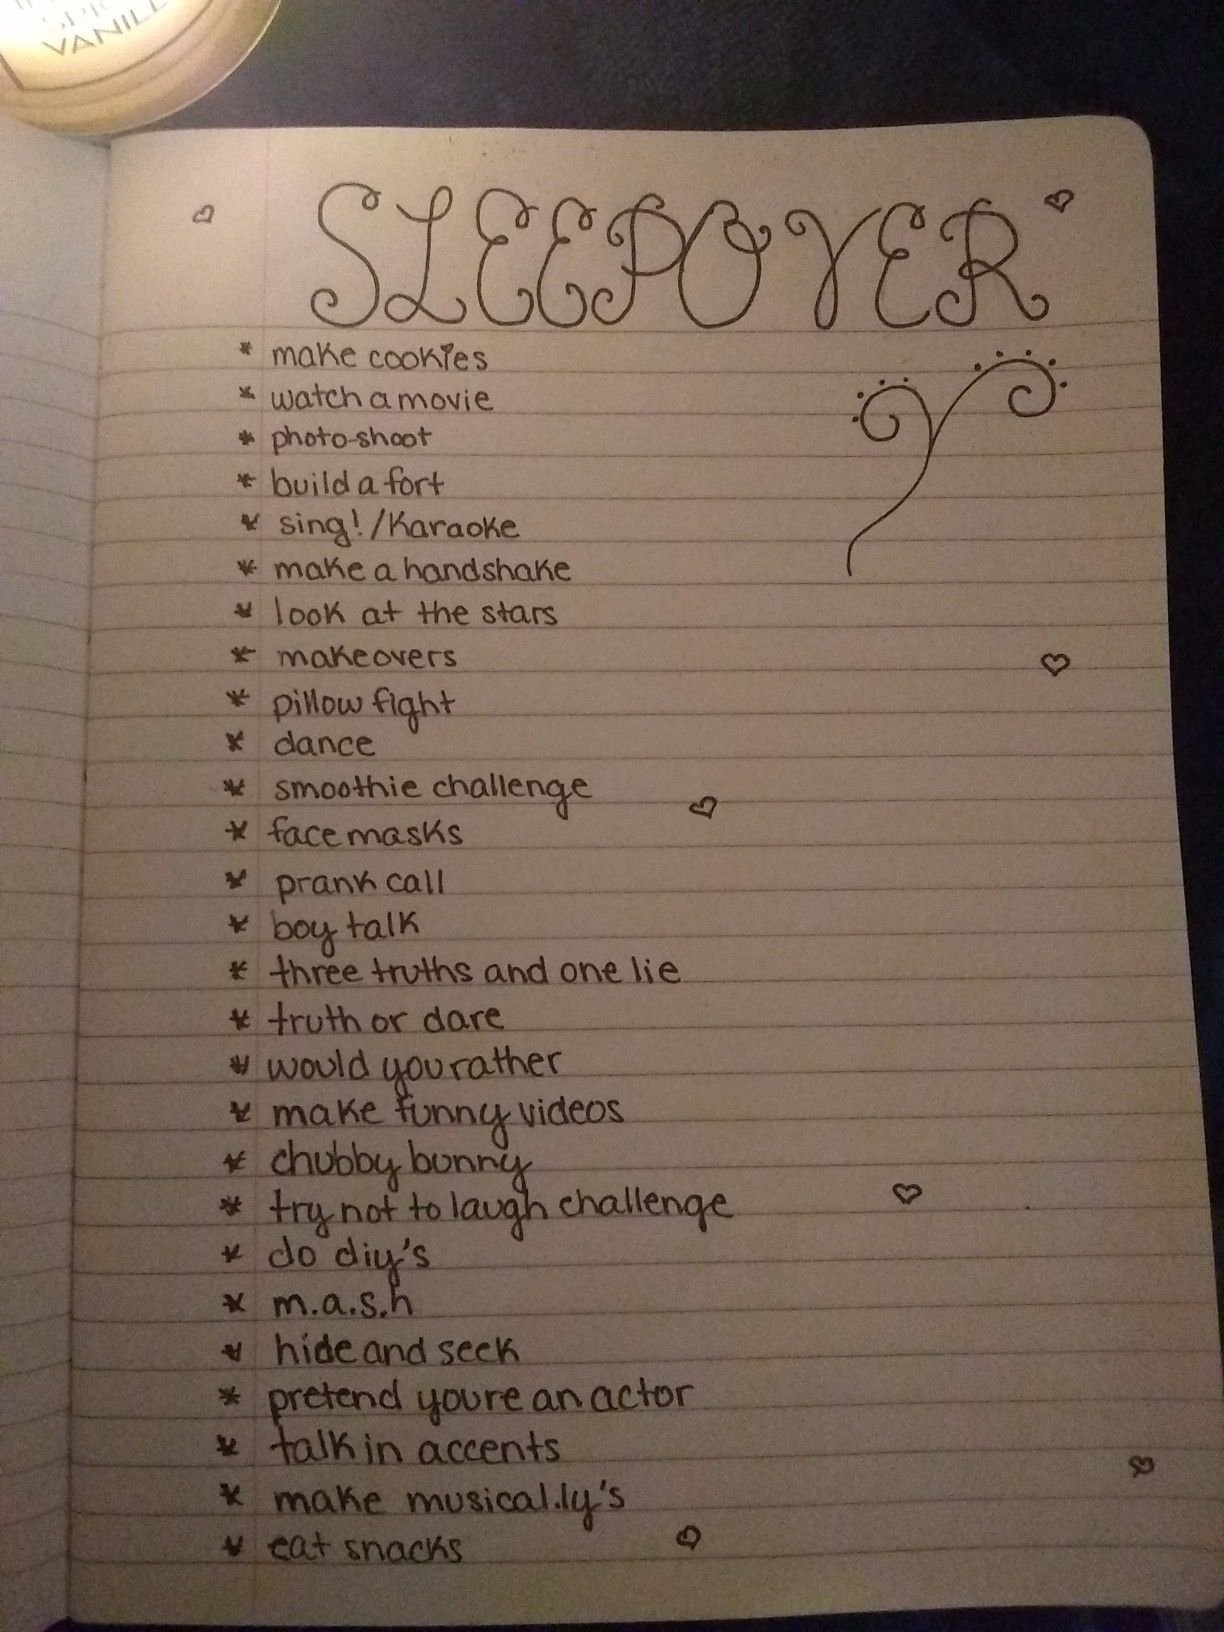 VANILL
SLEEPOVER
* make cookies
* watch a movie
* photo-shoot
* build a fort
* sing!/Karaoke
* make a handshake
* look at the stars
* makeovers
* pillow fight
* dance
* smoothie challenge
* face masks
* prank call
* boy talk
* three truths and one lie
* truth or dare
* would you rather
* make funny videos
* chubby bunny
* try not to laugh challenge
* do diy's
* m.a.s.h
* hide and seek
* pretend youre an actor
* talk in accents
* make musical.ly's
* eat snacks